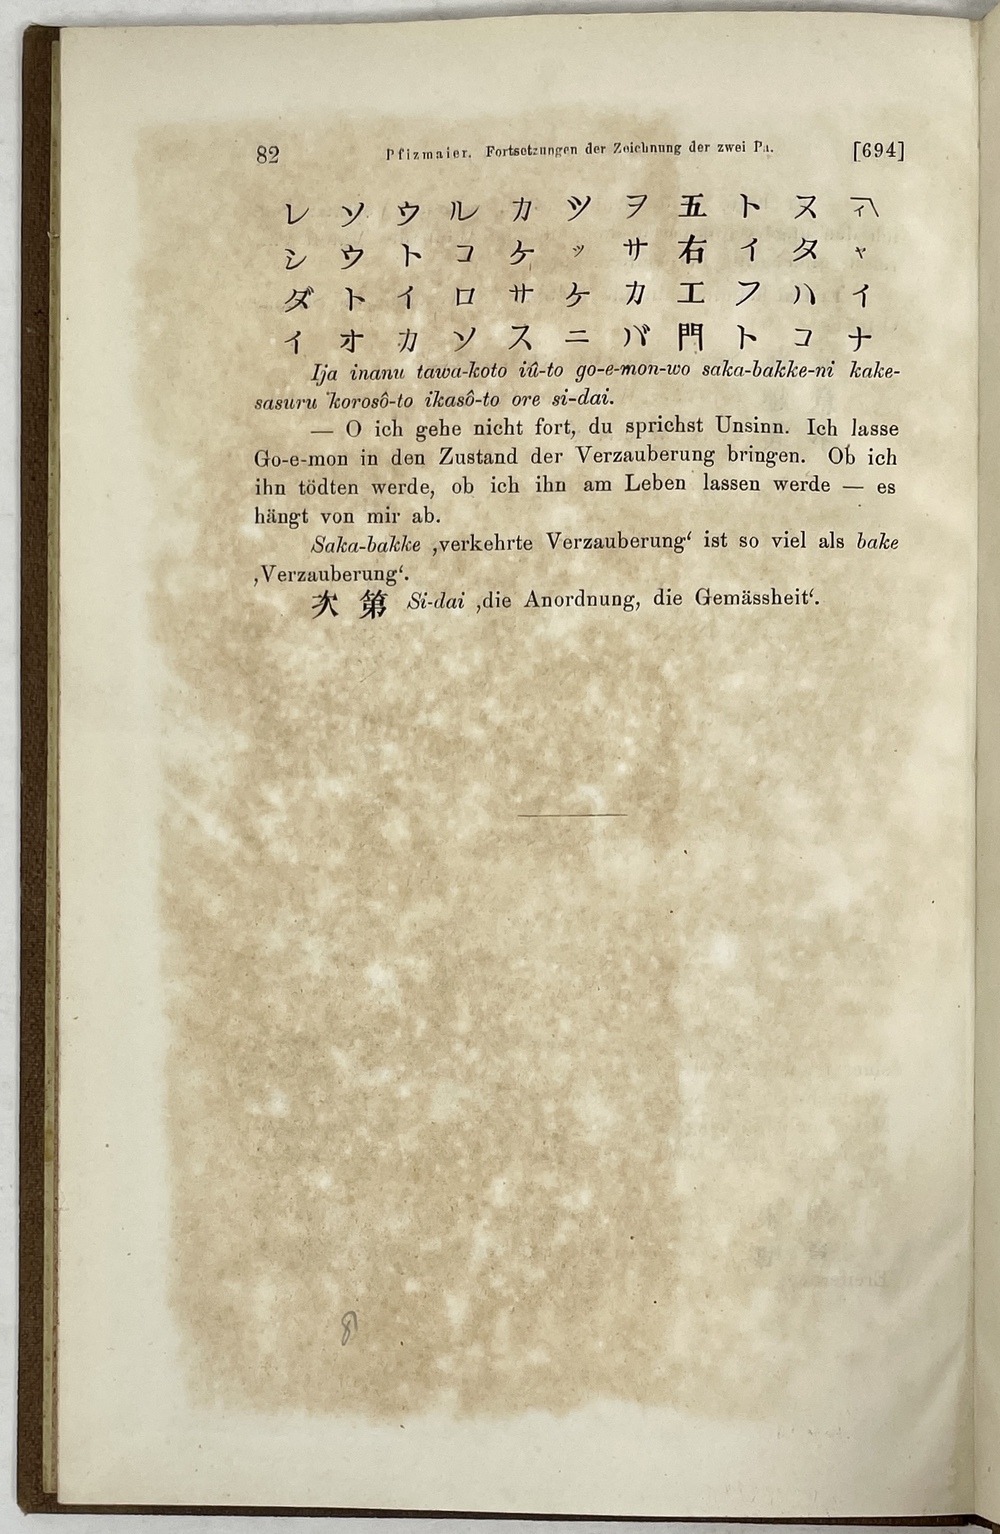 82 Pfizmaier. Fortsetzungen der Zeichnung der zwei Pa. [694]
〽ィャイナ
ヌタハコ
トイフト
五右エ門
ヲサカバ
ツッケニ
カケサス
ルコロソ
ウトイカ
ソウトオ
レシダイ
Ija inanu tawa-koto iû-to go-e-mon-wo saka-bakke-ni kake-
sasuru korosô-to ikasô-to ore si-dai.
— O ich gehe nicht fort, du sprichst Unsinn. Ich lasse
Go-e-mon in den Zustand der Verzauberung bringen. Ob ich
ihn tödten werde, ob ich ihn am Leben lassen werde — es
hängt von mir ab.
Saka-bakke ‚verkehrte Verzauberung‘ ist so viel als bake
‚Verzauberung‘.
次第 Si-dai ‚die Anordnung, die Gemässheit‘.